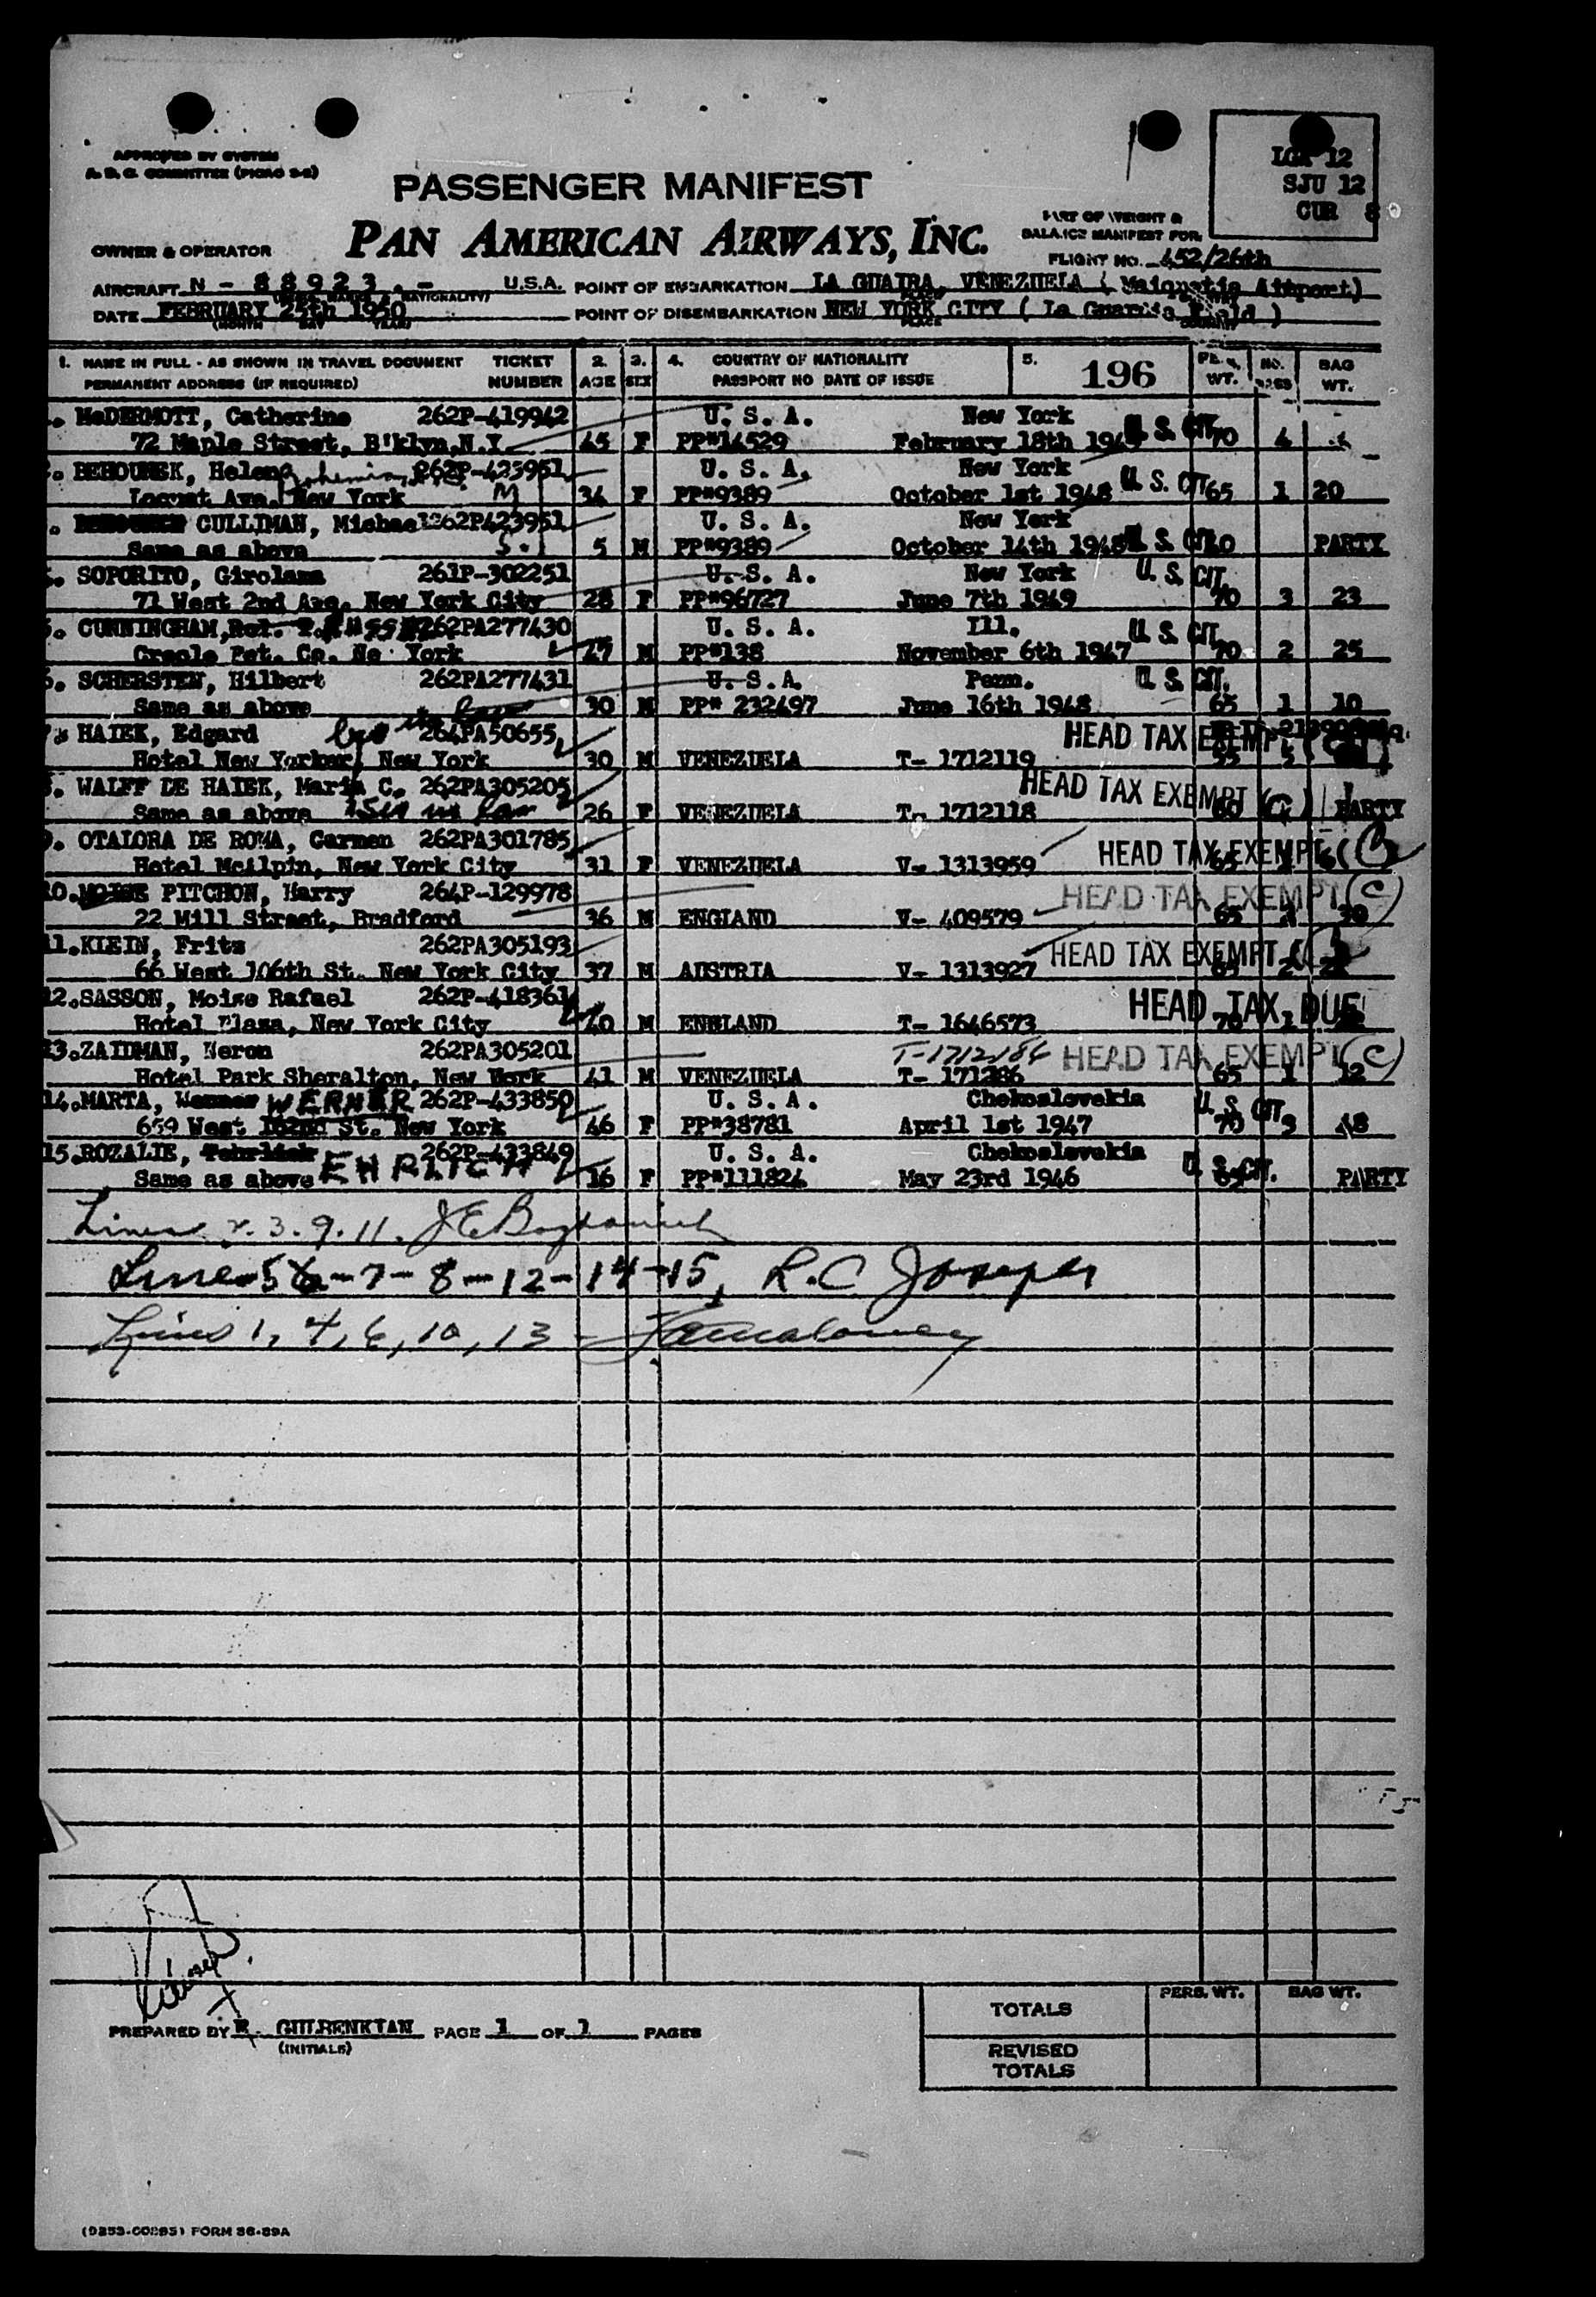 APPROVED BY SYSTEM
A. D. C. COMMITTEE (PICAO 9-2)
LGA 12
SJU 12
CUR 8
PASSENGER MANIFEST
PAN AMERICAN AIRWAYS, INC.
PART OF WEIGHT &
BALANCE MANIFEST FOR
OWNER & OPERATOR
FLIGHT NO. 452/26th
AIRCRAFT N - 88923 . - U.S.A. POINT OF EMBARKATION LA GUAIRA, VENEZUELA ( Maiquetia Airport)
DATE FEBRUARY 25th 1950 POINT OF DISEMBARKATION NEW YORK CITY ( La Guardia Field )
(MONTH DAY YEAR) PLACE COUNTRY
1. NAME IN FULL - AS SHOWN IN TRAVEL DOCUMENT TICKET 2. 3. 4. COUNTRY OF NATIONALITY 5. 196 NO. BAG
PERMANENT ADDRESS (IF REQUIRED) NUMBER AGE SEX PASSPORT NO DATE OF ISSUE WT. WT.
McDERMOTT, Catherine 262P-419942 U. S. A. New York
72 Maple Street, B'klyn,N.Y 45 F PP#14529 February 18th 194 U. S. CIT 70 4
BEHOUNEK, Helen Bohemia, 262P-425951 U. S. A. New York
Locust Ave. New York 34 F PP#9389 October 1st 1948 U. S. CIT 65 1 20
CULLIMAN, Michael 262P423951 U. S. A. New York
Same as above 5 M PP#9389 October 14th 1948 U. S. CIT PARTY
SOPORITO, Girolama 261P-302251 U. S. A. New York U. S. CIT.
71 West 2nd Ave. New York City 28 F PP#96727 June 7th 1949 70 3 23
5. CUNNINGHAM, 262PA277430 U. S. A. Ill. U. S. CIT
Creole Pet. Co. Ne York 27 M PP#138 November 6th 1947 70 2 25
6. SCHERSTEN, Hilbert 262PA277431 U. S. A. Penn. U. S. CIT.
Same as above 30 M PP# 232497 June 16th 1948 65 1 10
7. HAIEK, Edgard 264PA50655 HEAD TAX EXEMPT
Hotel New Yorker, New York 30 M VENEZUELA T- 1712119
WALFF DE HAIEK, Maria C. 262PA305205 HEAD TAX EXEMPT
Same as above 26 F VENEZUELA T- 1712118 PARTY
9. OTALORA DE ROMA, Carmen 262PA301785 HEAD TAX EXEMPT (C)
Hotel Mcilpin, New York City 31 F VENEZUELA V- 1313959
10. PITCHON, Harry 264P-129978 HEAD TAX EXEMPT (C)
22 Mill Street, Bradford 36 M ENGLAND V- 409579 65
11.KLEIN, Fritz 262PA305193 HEAD TAX EXEMPT
66 West 106th St. New York City 37 M AUSTRIA V- 1313927
12.SASSON, Moise Rafael 262P-418361 HEAD TAX DUE
Hotel Plaza, New York City 40 M ENGLAND T- 1646573 70
13.ZAIDMAN, Neron 262PA305201 T-1712186 HEAD TAX EXEMPT (C)
Hotel Park Sheralton, New York 41 M VENEZUELA T- 171286 65 1 12
14.MARTA, WERNER 262P-433850 U. S. A. Chekoslovekia U. S. CIT
659 West 162nd St. New York 46 F PP#38781 April 1st 1947 70 3 18
15.ROZALIE, 262P-433849 U. S. A. Chekoslovekia
Same as above EHRLICH 16 F PP#111824 May 23rd 1946 U. S. CIT. PARTY
Lines 2. 3. 9. 11.
Line 5 - 7 - 8 - 12 - 14 - 15, R.C Joseph
Lines 1, 4, 6, 10, 13
PREPARED BY R. GULBENKIAN PAGE 1 OF 1 PAGES
(INITIALS)
PERS. WT. BAG WT.
TOTALS
REVISED
TOTALS
FORM 36-89A